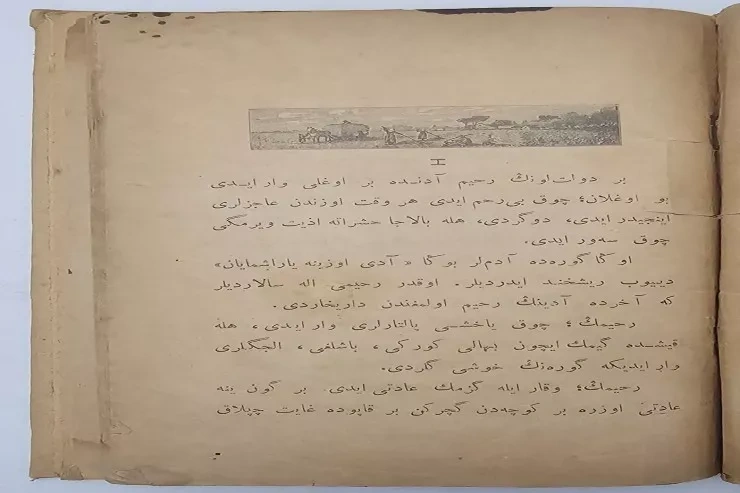 I
بر دولت‌لونڭ رحیم آدنده بر اوغلی وار ایدی
بو اوغلان؛ چوق بی‌رحم ایدی هر وقت اوزندن عاجزلری
اینجیدر ایدی، دوگردی، هله بالاجا حشراته اذیت ویرمگی
چوق سه‌ور ایدی.
اوڭا گوره‌ده آدم‌لر بوڭا «آدی اوزینه یاراشمایان»
دییوب ریشخند ایدردیلر. اوقدر رحیمی اله سالاردیلر
که آخرده آدینڭ رحیم اولمغندن داریخاردی.
رحیمڭ؛ چوق یاخشی پالتارلری وار ایدی، هله
قیشده گیمك ایچون بهالی کورکی، باشلغی، الجگلری
وار ایدیکه گوره‌نڭ خوشی گلردی.
رحیمڭ؛ وقار ایله گزمك عادتی ایدی. بر گون ینه
عادتی اوزره بر کوچه‌دن گچرکن بر قاپوده غایت چپلاق